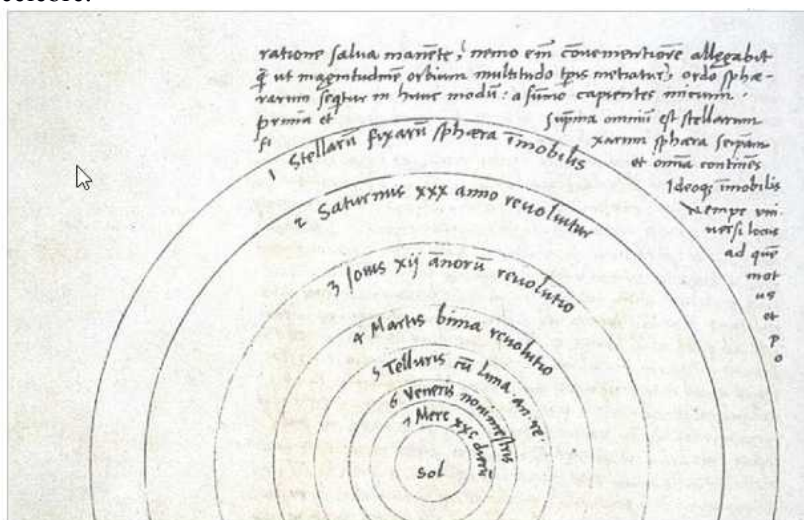 ratione salua manēte, nemo em̄ cōuenientiorē allegabit
q̄ ut magnitudinē orbium multitudo tp̄is metiatur, ordo sphæ-
rarum seq̄tur in hunc modū: a sūmo capientes initium.
prima et sup̄ma omniū est stellarum
fi xarum sphæra seip̄am
et omīa continēs
Ideoq; īmobilis
Nempe uni
uersi locus
ad quē
mot
us
et
p
o
1 Stellarū fixarū sphæra īmobilis
2 Saturnus xxx anno reuoluitur
3 Iouis xij annorū reuolutio
4 Martis bima reuolutio
5 Telluris cū Luna an. re.
6 Veneris nonimestris
7 Merc xxc dierū
Sol